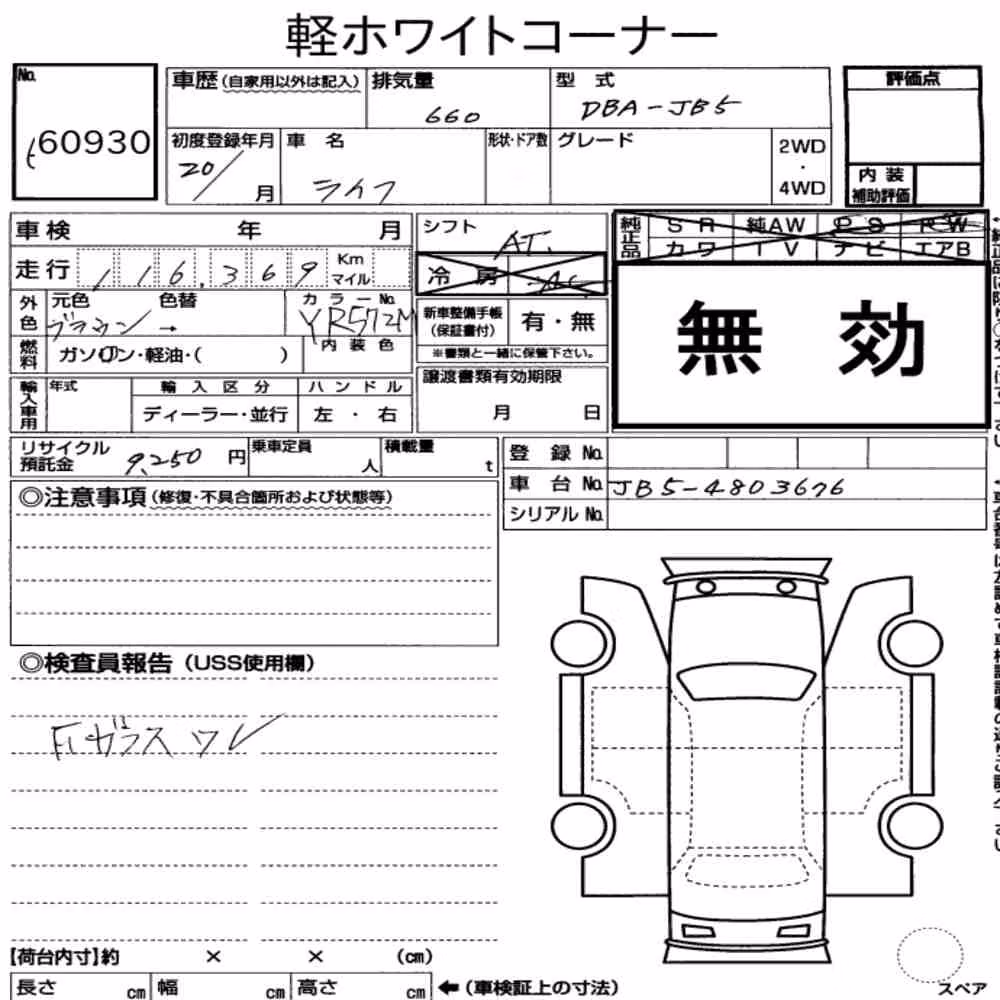 軽ホワイトコーナー
No. 60930
車歴(自家用以外は記入) 排気量 660 型式 DBA-JB5
初度登録年月 20/ 月 車名 ライフ 形状・ドア数 グレード 2WD・4WD
評価点
内装補助評価
車検 年 月
走行 116,369 Km マイル
シフト AT.
冷房 AC
純正品 SR 純AW PS PW
カワ TV ナビ エアB
無効
外色 元色 ブラウン → 色替 カラーNo. YR572M
燃料 ガソリン・軽油・( ) 内装色
新車整備手帳(保証書付) 有・無
※書類と一緒に保管下さい。
輸入車用 年式 輸入区分 ハンドル
ディーラー・並行 左・右
譲渡書類有効期限
月 日
リサイクル預託金 9,250 円 乗車定員 人 積載量 t
登録No.
車台No. JB5-4803676
シリアルNo.
◎注意事項(修復・不具合箇所および状態等)
◎検査員報告(USS使用欄)
Fガラスワレ
【荷台内寸】約 × × (cm)
長さ cm 幅 cm 高さ cm ←(車検証上の寸法)
スペア